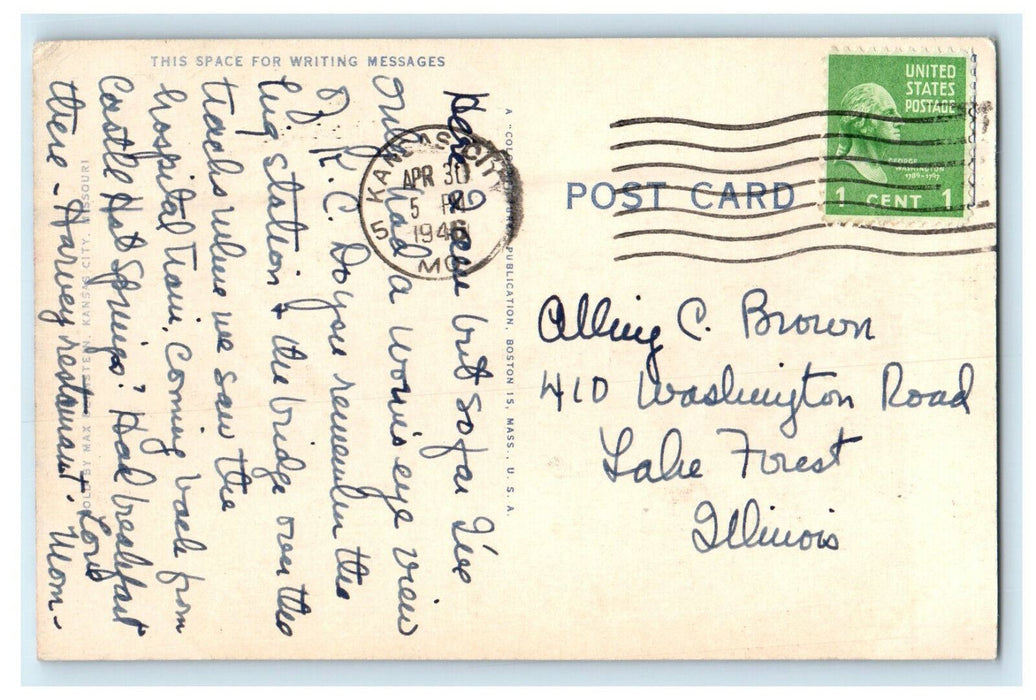 THIS SPACE FOR WRITING MESSAGES
Have been but so far I've
only had a worm's eye view
of K.C. Do you remember the
big station & the bridge over the
tracks where we saw the
hospital train. Coming back from
Castle Hot Springs? Had breakfast
there - Harvey restaurant. Love
Mom -
KANSAS CITY
APR 30
5 PM
1946
MO
5
A "COLOURPICTURE" PUBLICATION, BOSTON 15, MASS., U. S. A.
SOLD BY MAX BERNSTEIN, KANSAS CITY, MISSOURI
POST CARD
UNITED
STATES
POSTAGE
GEORGE
WASHINGTON
1789-1797
1 CENT 1
Alling C. Brown
410 Washington Road
Lake Forest
Illinois